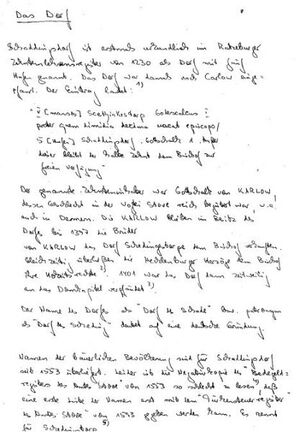 Das Dorf
Schaddingsdorf ist erstmals urkundlich im Ratzeburger
Zehntlehensregister von 1230 als Dorf mit fünf
Hufen genannt. Das Dorf war damals nach Carlow einge-
pfarrt. Der Eintrag lautet: 1)
"V [mansos] Gotescalcus
preter quem dimidia decima vacat episcopo/
5 [Hufen] Schaddingsdorf. Gottschalk 1. Hufe
bleibt die halbe Zehnt dem Bischof zur
freien Verfügung"
Der genannte Zehntlehninhaber war Gottschalk von KARLOW,
dessen Geschlecht in der Vogtei Stove reich begütert war u.a.
auch in Demern. Die KARLOW bleiben im Besitz des
Dorfes bis 1357 die Brüder
von KARLOW das Dorf dem Bischof verkauften.
Gleichzeitig überließen die Mecklenburger Herzöge dem Bischof
ihre Hoheitsrechte. 1401 war das Dorf dann zeitweilig
an das Domkapitel verpfändet.
Der Name des Dorfes als "Dorf des Schade" bzw.
als "Dorf des" deutet auf eine deutsche Gründung.
Namen der bäuerlichen Bevölkerung sind für Schaddingsdorf
seit 1553 überliefert. Leider ist die des
registers des Amtes Stove" von 1553 so schlecht zu lesen, daß
eine erste Liste der Namen erst mit dem "Türkensteuerregister
des Amtes Stove" von gegeben werden kann. Es nennt
für